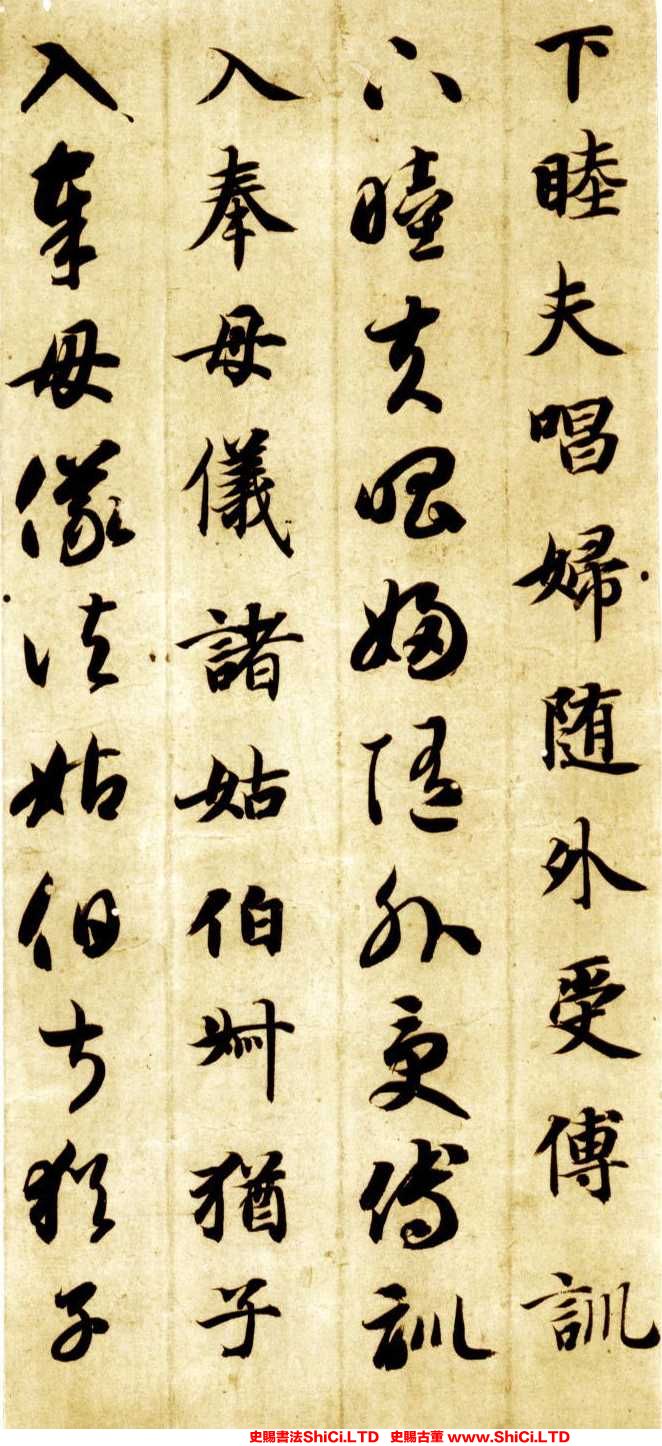 下睦夫唱婦随外受傅訓
下睦夫唱婦随外受傅訓
入奉母儀諸姑伯叔猶子
入奉母儀諸姑伯叔猶子
史賜書法ShiCi.LTD 史賜古董 www.ShiCi.LTD